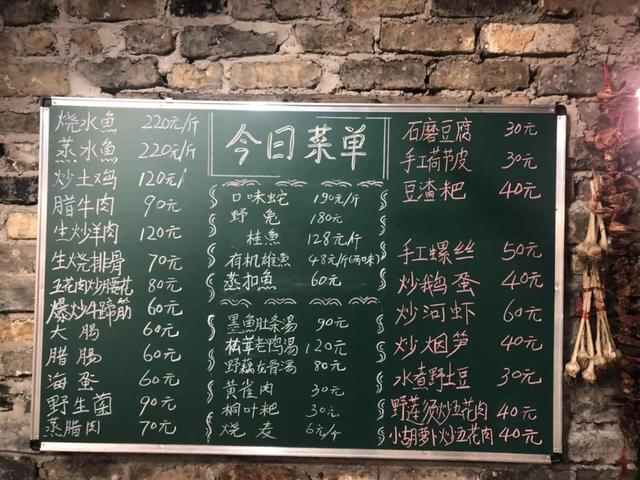 今日菜单
烧水鱼 220元/斤
蒸水鱼 220元/斤
炒土鸡 120元/
腊牛肉 90元
生炒洋肉 120元
生烧排骨 70元
五花肉炒腰花 80元
爆炒牛蹄筋 60元
大腸 60元
腊腸 60元
海蛋 60元
野生菌 90元
蒸腊肉 70元
口味蛇 190元/斤
野兔 180元
桂魚 128元/斤
有机雄魚 48元/斤(两味)
蒸扣魚 60元
墨魚肚条湯 90元
菇茸老鸭湯 120元
野藕龙骨湯 80元
黄雀肉 30元
桐叶粑 30元
烧麦 6元/个
石磨豆腐 30元
手工荷节皮 30元
豆渣粑 40元
手工螺丝 50元
炒鹅蛋 40元
炒河虾 60元
炒烟笋 40元
水煮野土豆 30元
野莲须炒五花肉 40元
小胡萝卜炒五花肉 40元